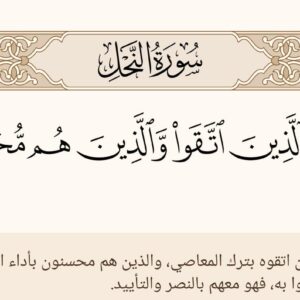 سُورَةُ النَّحْلِ
ٱلَّذِينَ ٱتَّقَوا۟ وَّٱلَّذِينَ هُم
اتقوه بترك المعاصي، والذين هم محسنون بأداء
به، فهو معهم بالنصر والتأييد.